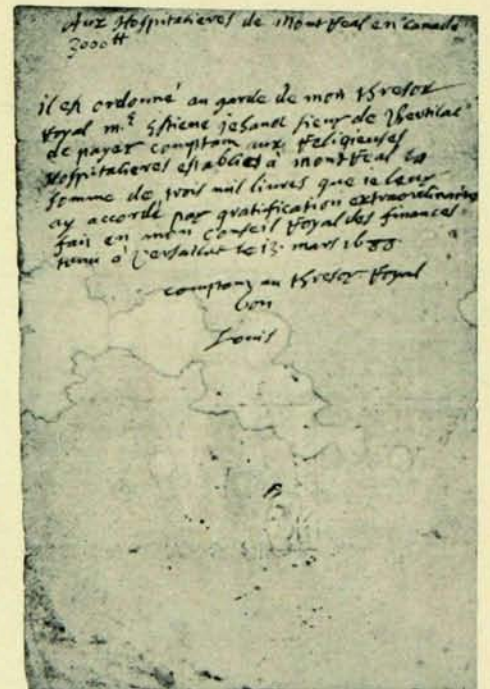 Aux Hospitalieres de Montreal en Canada
3000tt
il est ordonné au garde de mon thresor
Royal m.e Estiene jehanot sieur de
de payer comptant aux Religieuses
Hospitalieres establies à montreal la
somme de trois mil liures que ie leur
ay accordé par gratification extraordinaire
fait en mon Conseil Royal des finances
tenu à Versailles le 13. mars 1688
comptant au thresor Royal
bon
Louis